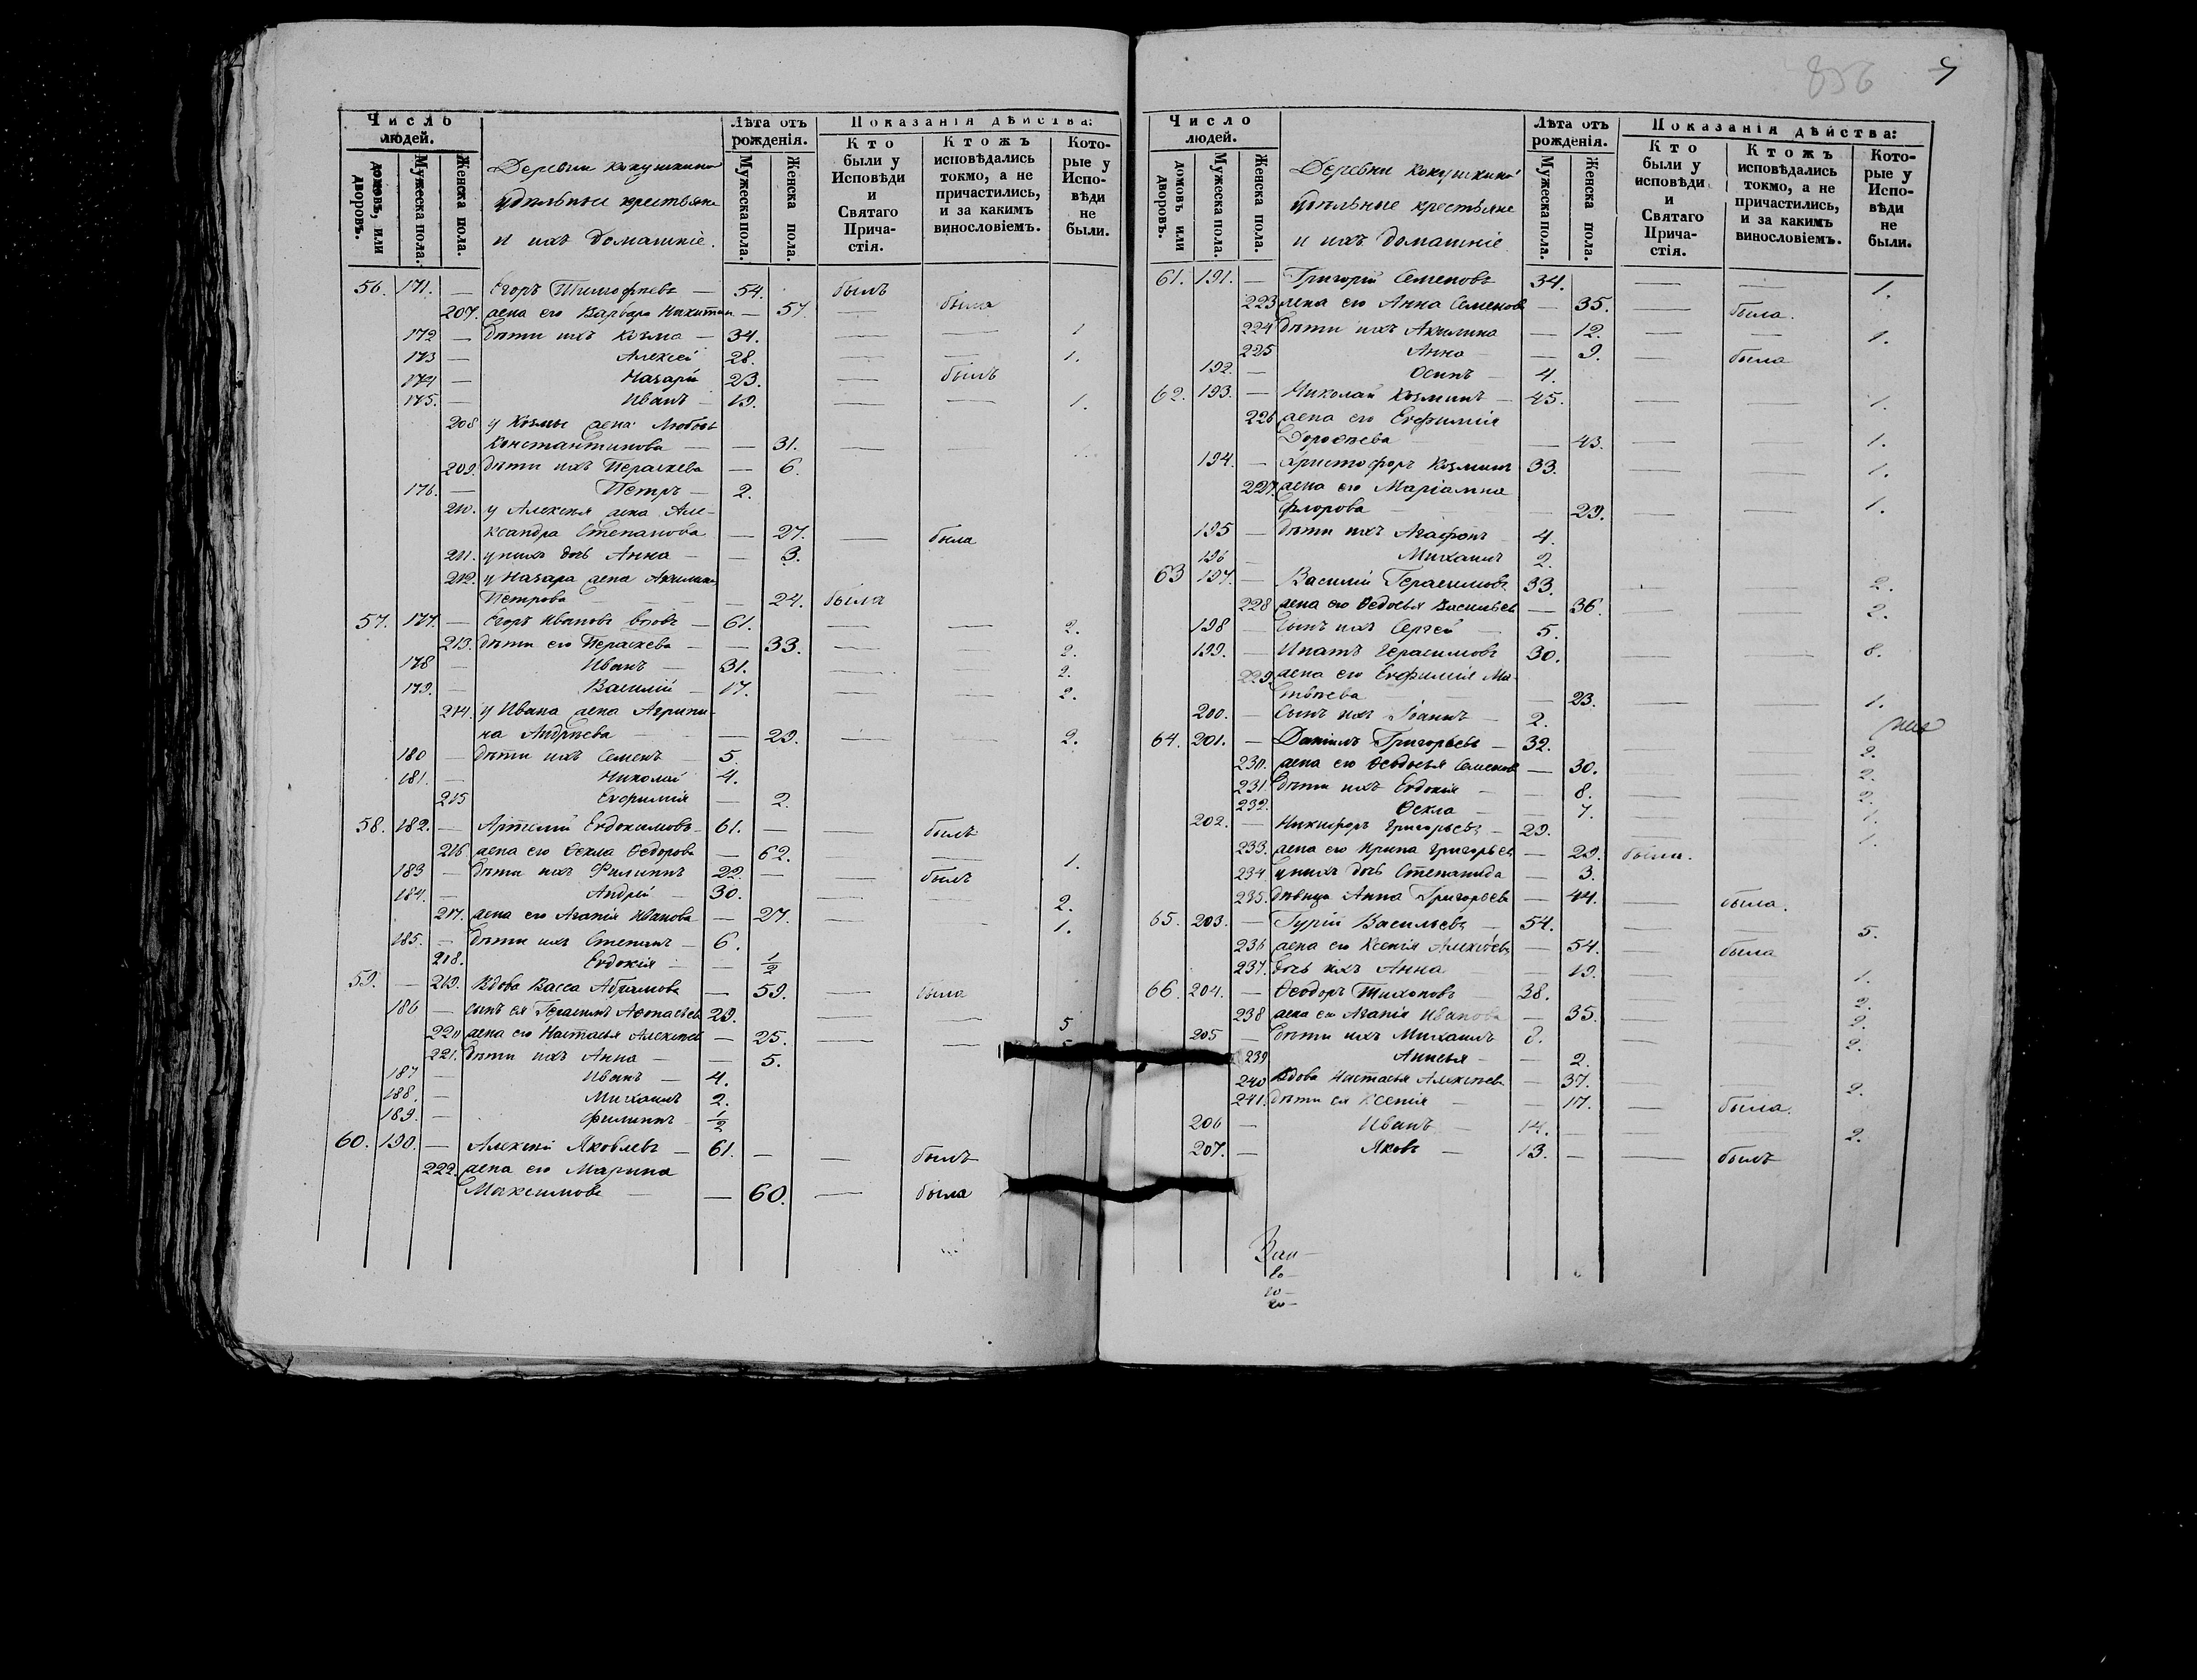 856
Число людей.
домовъ, или дворовъ.
Мужеска пола.
Женска пола.
Деревни Кокушкино
удѣльные крестьяне
и ихъ домашніе.
Лѣта отъ рожденія.
Мужеска пола.
Женска пола.
Показанія дѣйства:
Кто были у Исповѣди и Святаго Прича-стія.
Ктожъ исповѣдались токмо, а не причастились, и за какимъ винословіемъ.
Кото-рые у Испо-вѣди не были.
56. 171. — Егоръ Тимофеевъ — 54. былъ
207. жена его Варвара Никитин — 57. — была
172 — дѣти ихъ Козма — 34. — — 1
173 — Алексѣй 28. — — 1.
174 — Назарій 23. — былъ
175. — Иванъ — 19. — — 1.
208 у Козмы жена Любовь
Константинова — — 31. — —
209. дѣти ихъ Параскева — 6.
176. — Петръ — 2.
210. у Алексѣя жена Але-
ксандра Степанова — 27. — была
211. у нихъ дочь Анна — — 3.
212. у Назара жена Акилина
Петрова — — 24. была
57. 177. — Егоръ Ивановъ вдовъ — 61. — — 2.
213. дѣти его Параскева — — 33. — — 2.
178 — Иванъ — 31. — — 2.
179. — Василій — 17. — — 2.
214. у Ивана жена Агрипи-
на Андреева — — 29. — — 2.
180 — дѣти ихъ Семенъ — 5.
181. — Николай 4.
215 Евфимія — 2.
58. 182. — Артемій Евдокимовъ — 61. — — былъ
216 жена его Ѳекла Ѳедорова — 62. — — 1.
183 — дѣти ихъ Филиппъ 22. — былъ
184. — Андрей — 30. — — 2.
217. жена его Агапія Иванова — 27. — — 1.
185. — дѣти ихъ Степанъ — 6.
218. Евдокія — — ½
59. — 219. Вдова Васса Абрамова — 59. — была
186 — сынъ ея Герасимъ Аѳонасьевъ 29. — — 5
220 жена его Настасья Алексѣев — 25. — —
221. дѣти ихъ Анна — — 5.
187 — Иванъ — 4.
188. — Михаилъ 2.
189. — Филиппъ ½
60. 190. — Алексѣй Яковлевъ — 61. — — былъ
222. жена его Марина
Максимова — — 60. — была
Число людей.
домовъ или дворовъ.
Мужеска пола.
Женска пола.
Деревни Кокушкино
удѣльные крестьяне
и ихъ домашніе
Лѣта отъ рожденія.
Мужеска пола.
Женска пола.
Показанія дѣйства:
Кто были у исповѣди и Святаго Прича-стія.
Ктожъ исповѣдались токмо, а не причастились, и за какимъ винословіемъ.
Кото-рые у Испо-вѣди не были.
61. 191. — Григорій Семеновъ 34. — — 1.
223 жена его Анна Семенов — 35. — была.
224 дѣти ихъ Акилина — 12. — — 1.
225 Анна — — 9. — была
192. — Осипъ — 4.
62. 193. — Николай Козминъ — 45. — — 1.
226 жена его Евфимія
Дороѳеева — 43. — — 1.
194. — Христофоръ Козминъ 33. — — 1.
227. жена его Маріамна
Флорова — — 29. — — 1.
195 — дѣти ихъ Агафонъ 4.
196 — Михаилъ 2.
63 197. — Василій Герасимовъ 33. — — 2.
228 жена его Ѳедосья Васильев — 36. — — 2.
198 — сынъ ихъ Сергей — 5.
199. — Ипатъ Герасимовъ 30. — — 8.
229. жена его Евфимія Ма-
твѣева — 23. — — 1.
200. — Сынъ ихъ Іоаннъ — 2.
64. 201. — Даніилъ Григорьевъ — 32. — — 2.
230. жена его Ѳеодосья Семенов — 30. — — 2.
231. дѣти ихъ Евдокія — — 8. — — 2.
232. Ѳекла — — 7. — — 1.
202. — Никифоръ Григорьевъ — 29. — — 1.
233. жена его Ирина Григорьев — 29. была.
234. у нихъ дочь Степанида — 3.
235. дѣвица Анна Григорьева — 44. — была.
65. 203. — Гурій Васильевъ — 54. — — 5.
236 жена его Ксенія Алексѣев — 54. — была
237. дочь ихъ Анна — 19. — — 1.
66. 204. — Ѳеодоръ Тихоновъ 38. — — 2.
238 жена его Агапія Иванова — 35. — — 2.
205 — дѣти ихъ Михаилъ 8. — — 2.
239 Анисья — — 2.
240 Вдова Настасья Алексѣев — 37. — — 2.
241. дѣти ея Ксенія — — 17. — была.
206 — Иванъ — 14. — — 2.
207. — Яковъ — 13. — — былъ